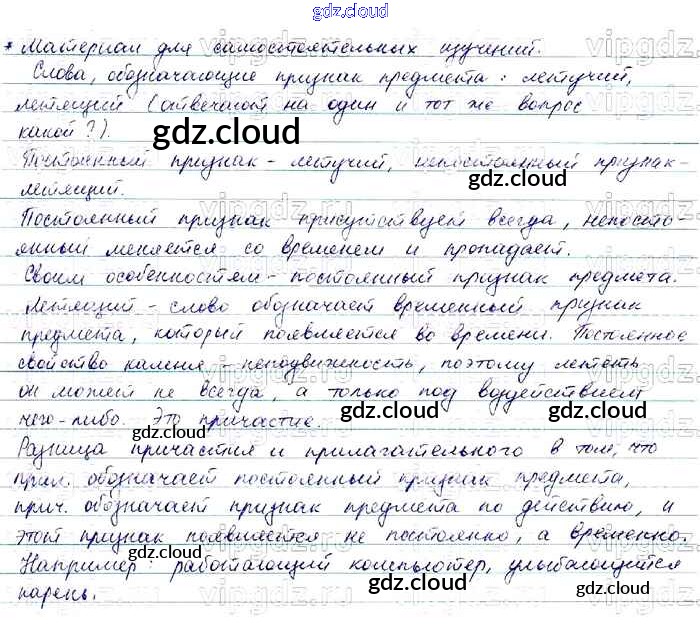 gdz.cloud
* Материал для самостоятельных изучений.
Слова, обозначающие признак предмета: летучий,
летящий (отвечают на один и тот же вопрос
какой?).
gdz.cloud
Постоянный признак - летучий, непостоянный признак -
летящий.
gdz.cloud
Постоянный признак присуйствует всегда, непосто-
янный меняется со временем и пропадает.
Своим особенностям - постоянный признак предмета.
Летящий - слово обозначает временный признак
предмета, который появляется во времени. Постоянное
свойство камня - неподвижность, поэтому лететь
он может не всегда, а только под воздействием
чего-либо. Это причастие.
gdz.cloud
gdz.cloud
gdz.cloud
Разница причастия и прилагательного в том, что
прил. обозначает постоянный признак предмета,
прич. обозначает признак предмета по действию, и
этот признак появляется не постоянно, а временно.
gdz.cloud
Например: работающий компьютер, улыбающийся
парень.
gdz.cloud
gdz.cloud